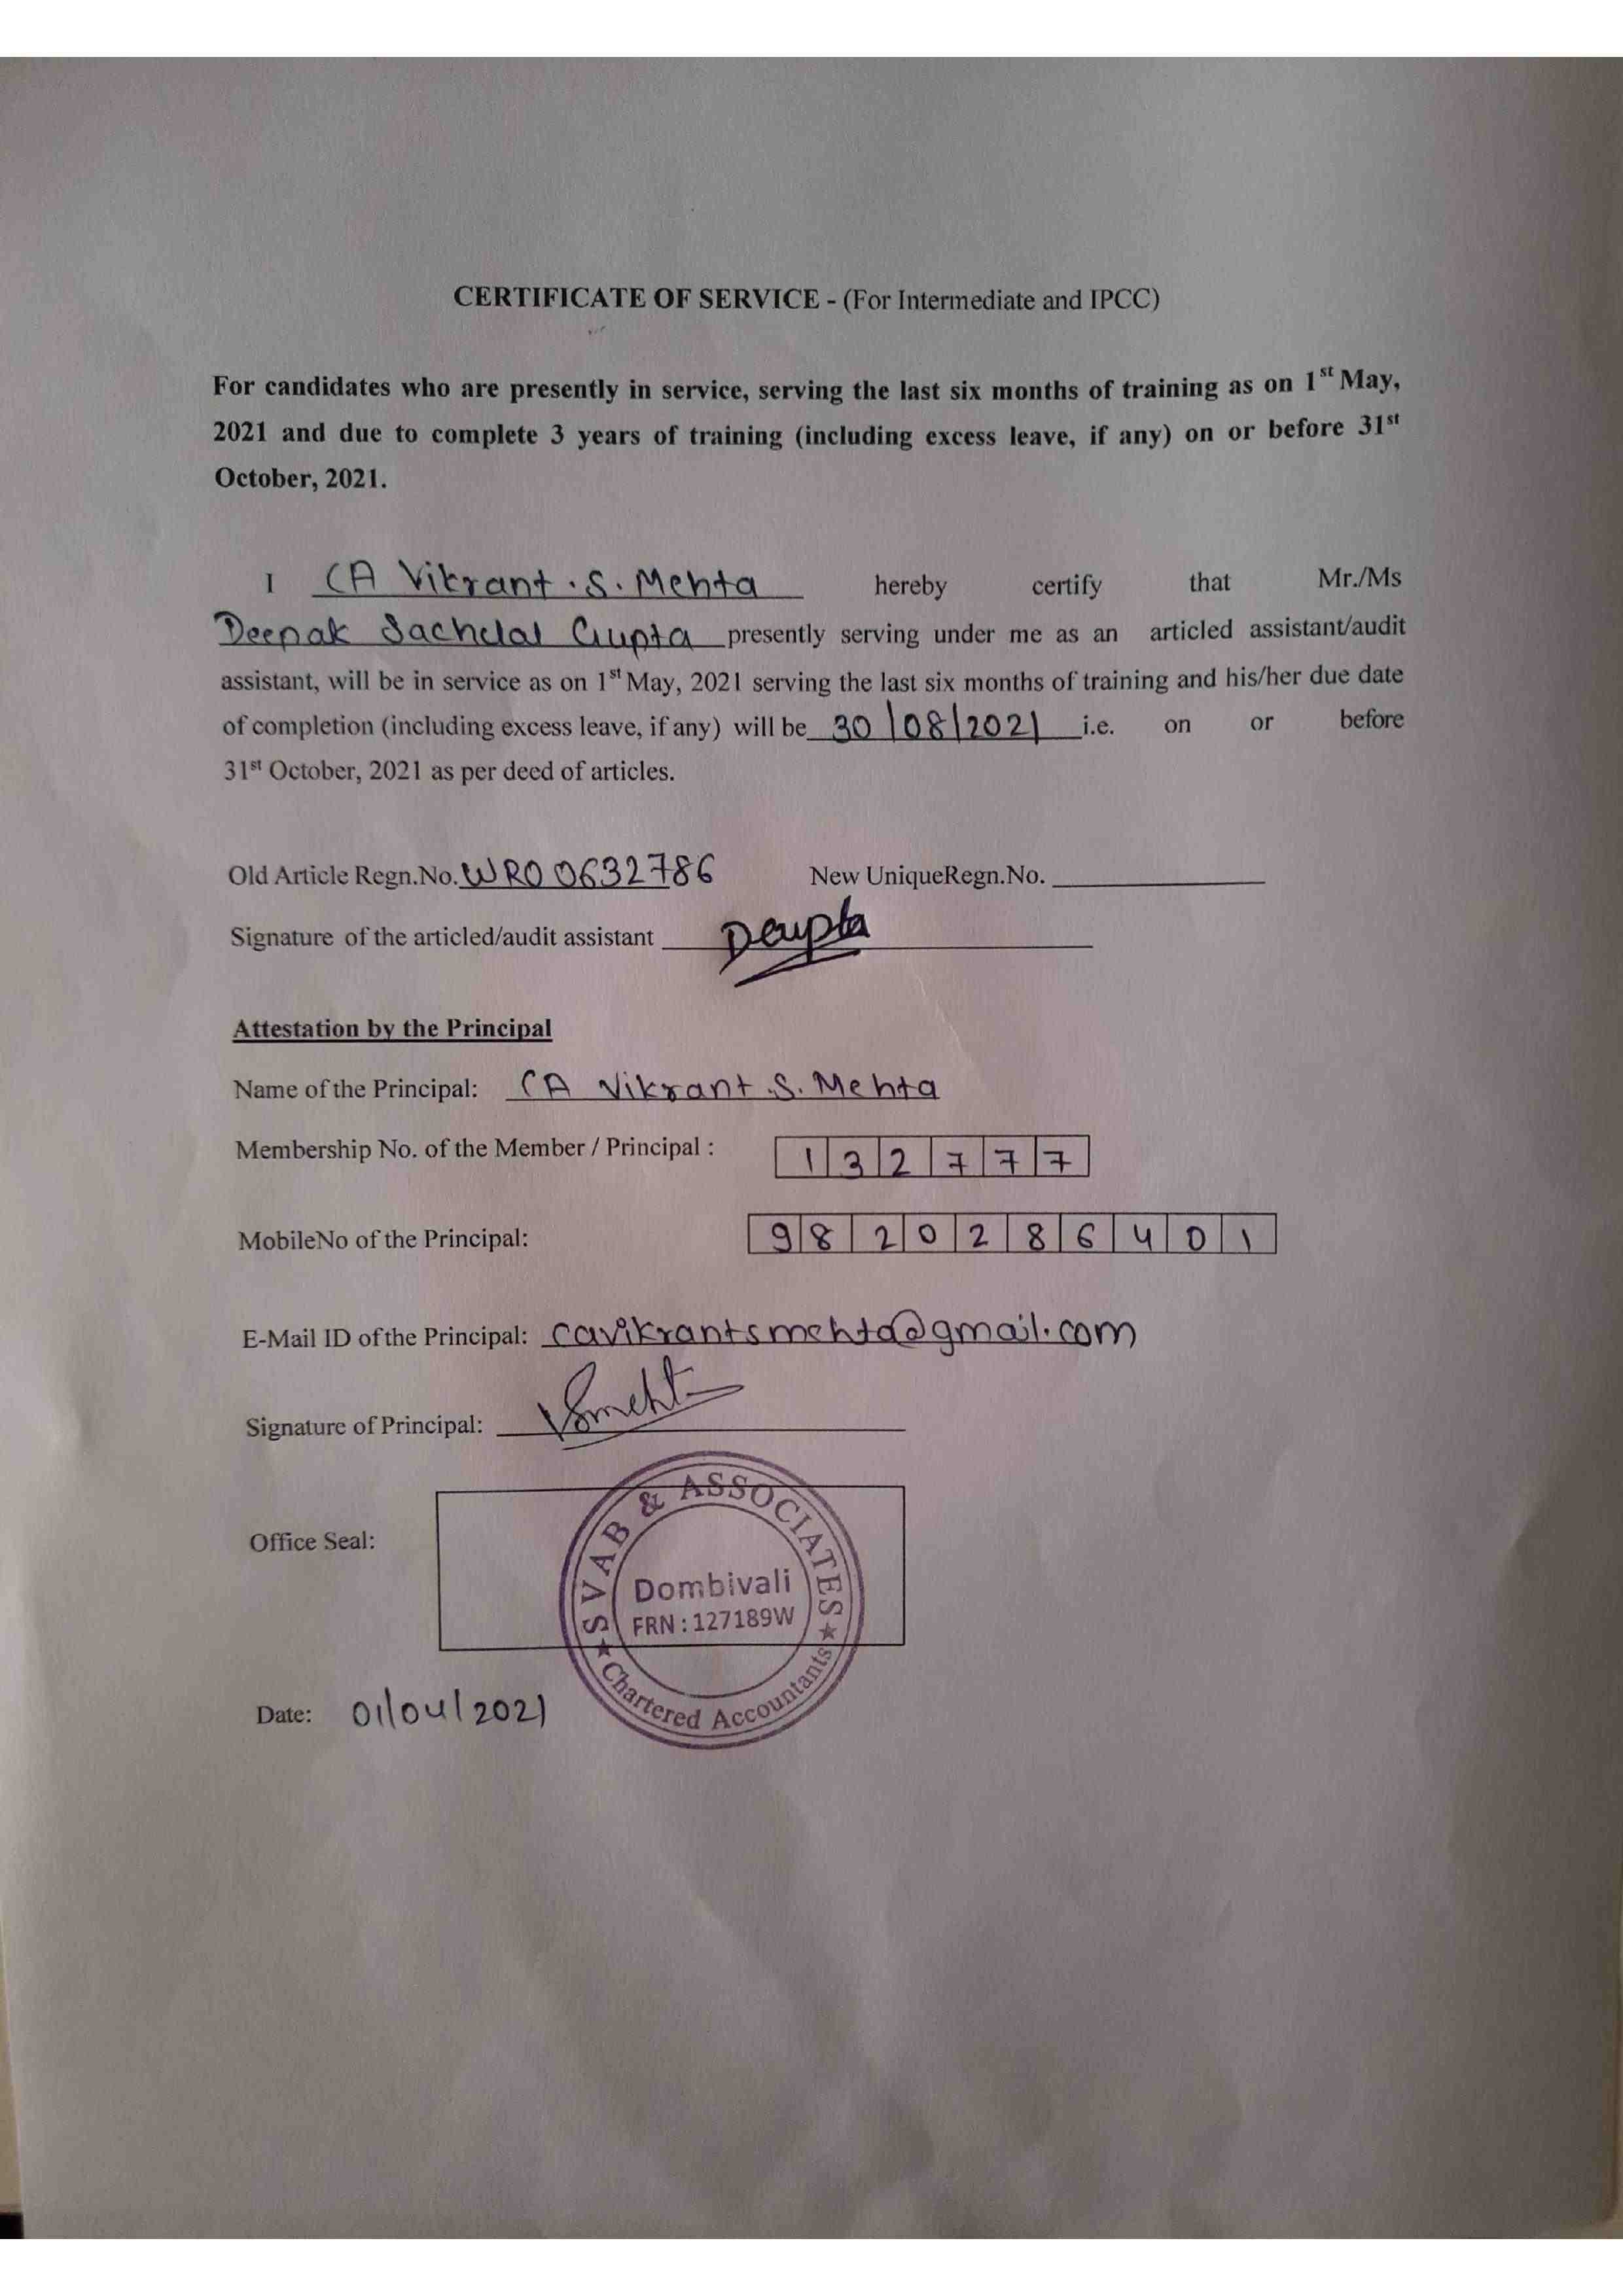 CERTIFICATE OF SERVICE - (For Intermediate and IPCC)
For candidates who are presently in service, serving the last six months of training as on 1st May,
2021 and due to complete 3 years of training (including excess leave, if any) on or before 31st
October, 2021.
I CA Vikrant . S. Mehta hereby certify that Mr./Ms
Deepak Sachelal Gupta presently serving under me as an articled assistant/audit
assistant, will be in service as on 1st May, 2021 serving the last six months of training and his/her due date
of completion (including excess leave, if any) will be 30/08/2021 i.e. on or before
31st October, 2021 as per deed of articles.
Old Article Regn.No. WRO 0632786 New UniqueRegn.No.
Signature of the articled/audit assistant DGupta
Attestation by the Principal
Name of the Principal: CA Vikrant .S. Mehta
Membership No. of the Member / Principal : 132777
MobileNo of the Principal: 9820286401
E-Mail ID of the Principal: cavikrantsmehta@gmail.com
Signature of Principal: VSmehta
SVAB & ASSOCIATES
Office Seal:
Dombivali
FRN : 127189W
Chartered Accountants
Date: 01/04/2021